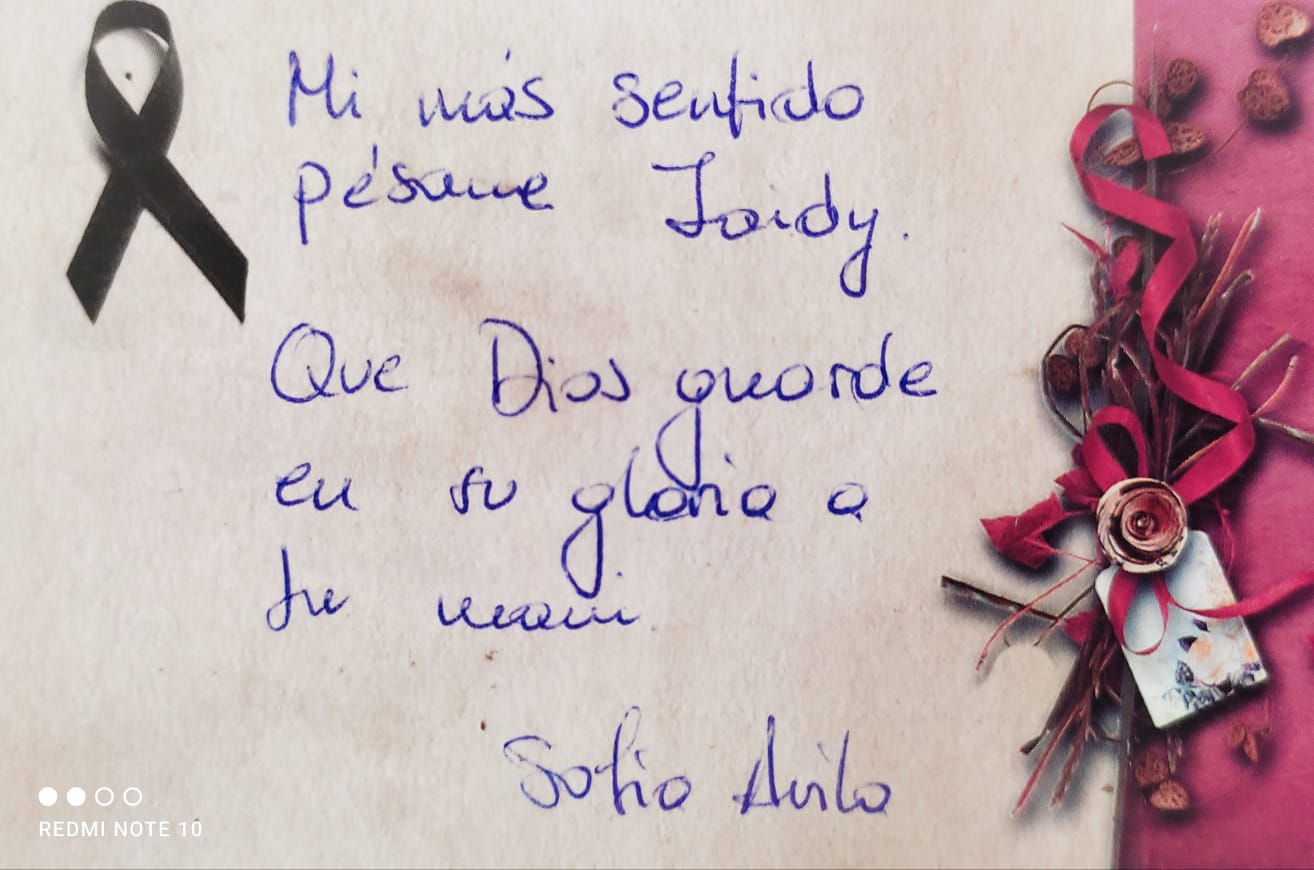 Mi más sentido
pésame Zaidy.
Que Dios guarde
en su gloria a
tu mami.
Sofia Avila
REDMI NOTE 10